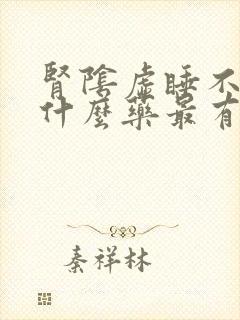 腎陰虛睡不
什麼藥最有
秦祥林